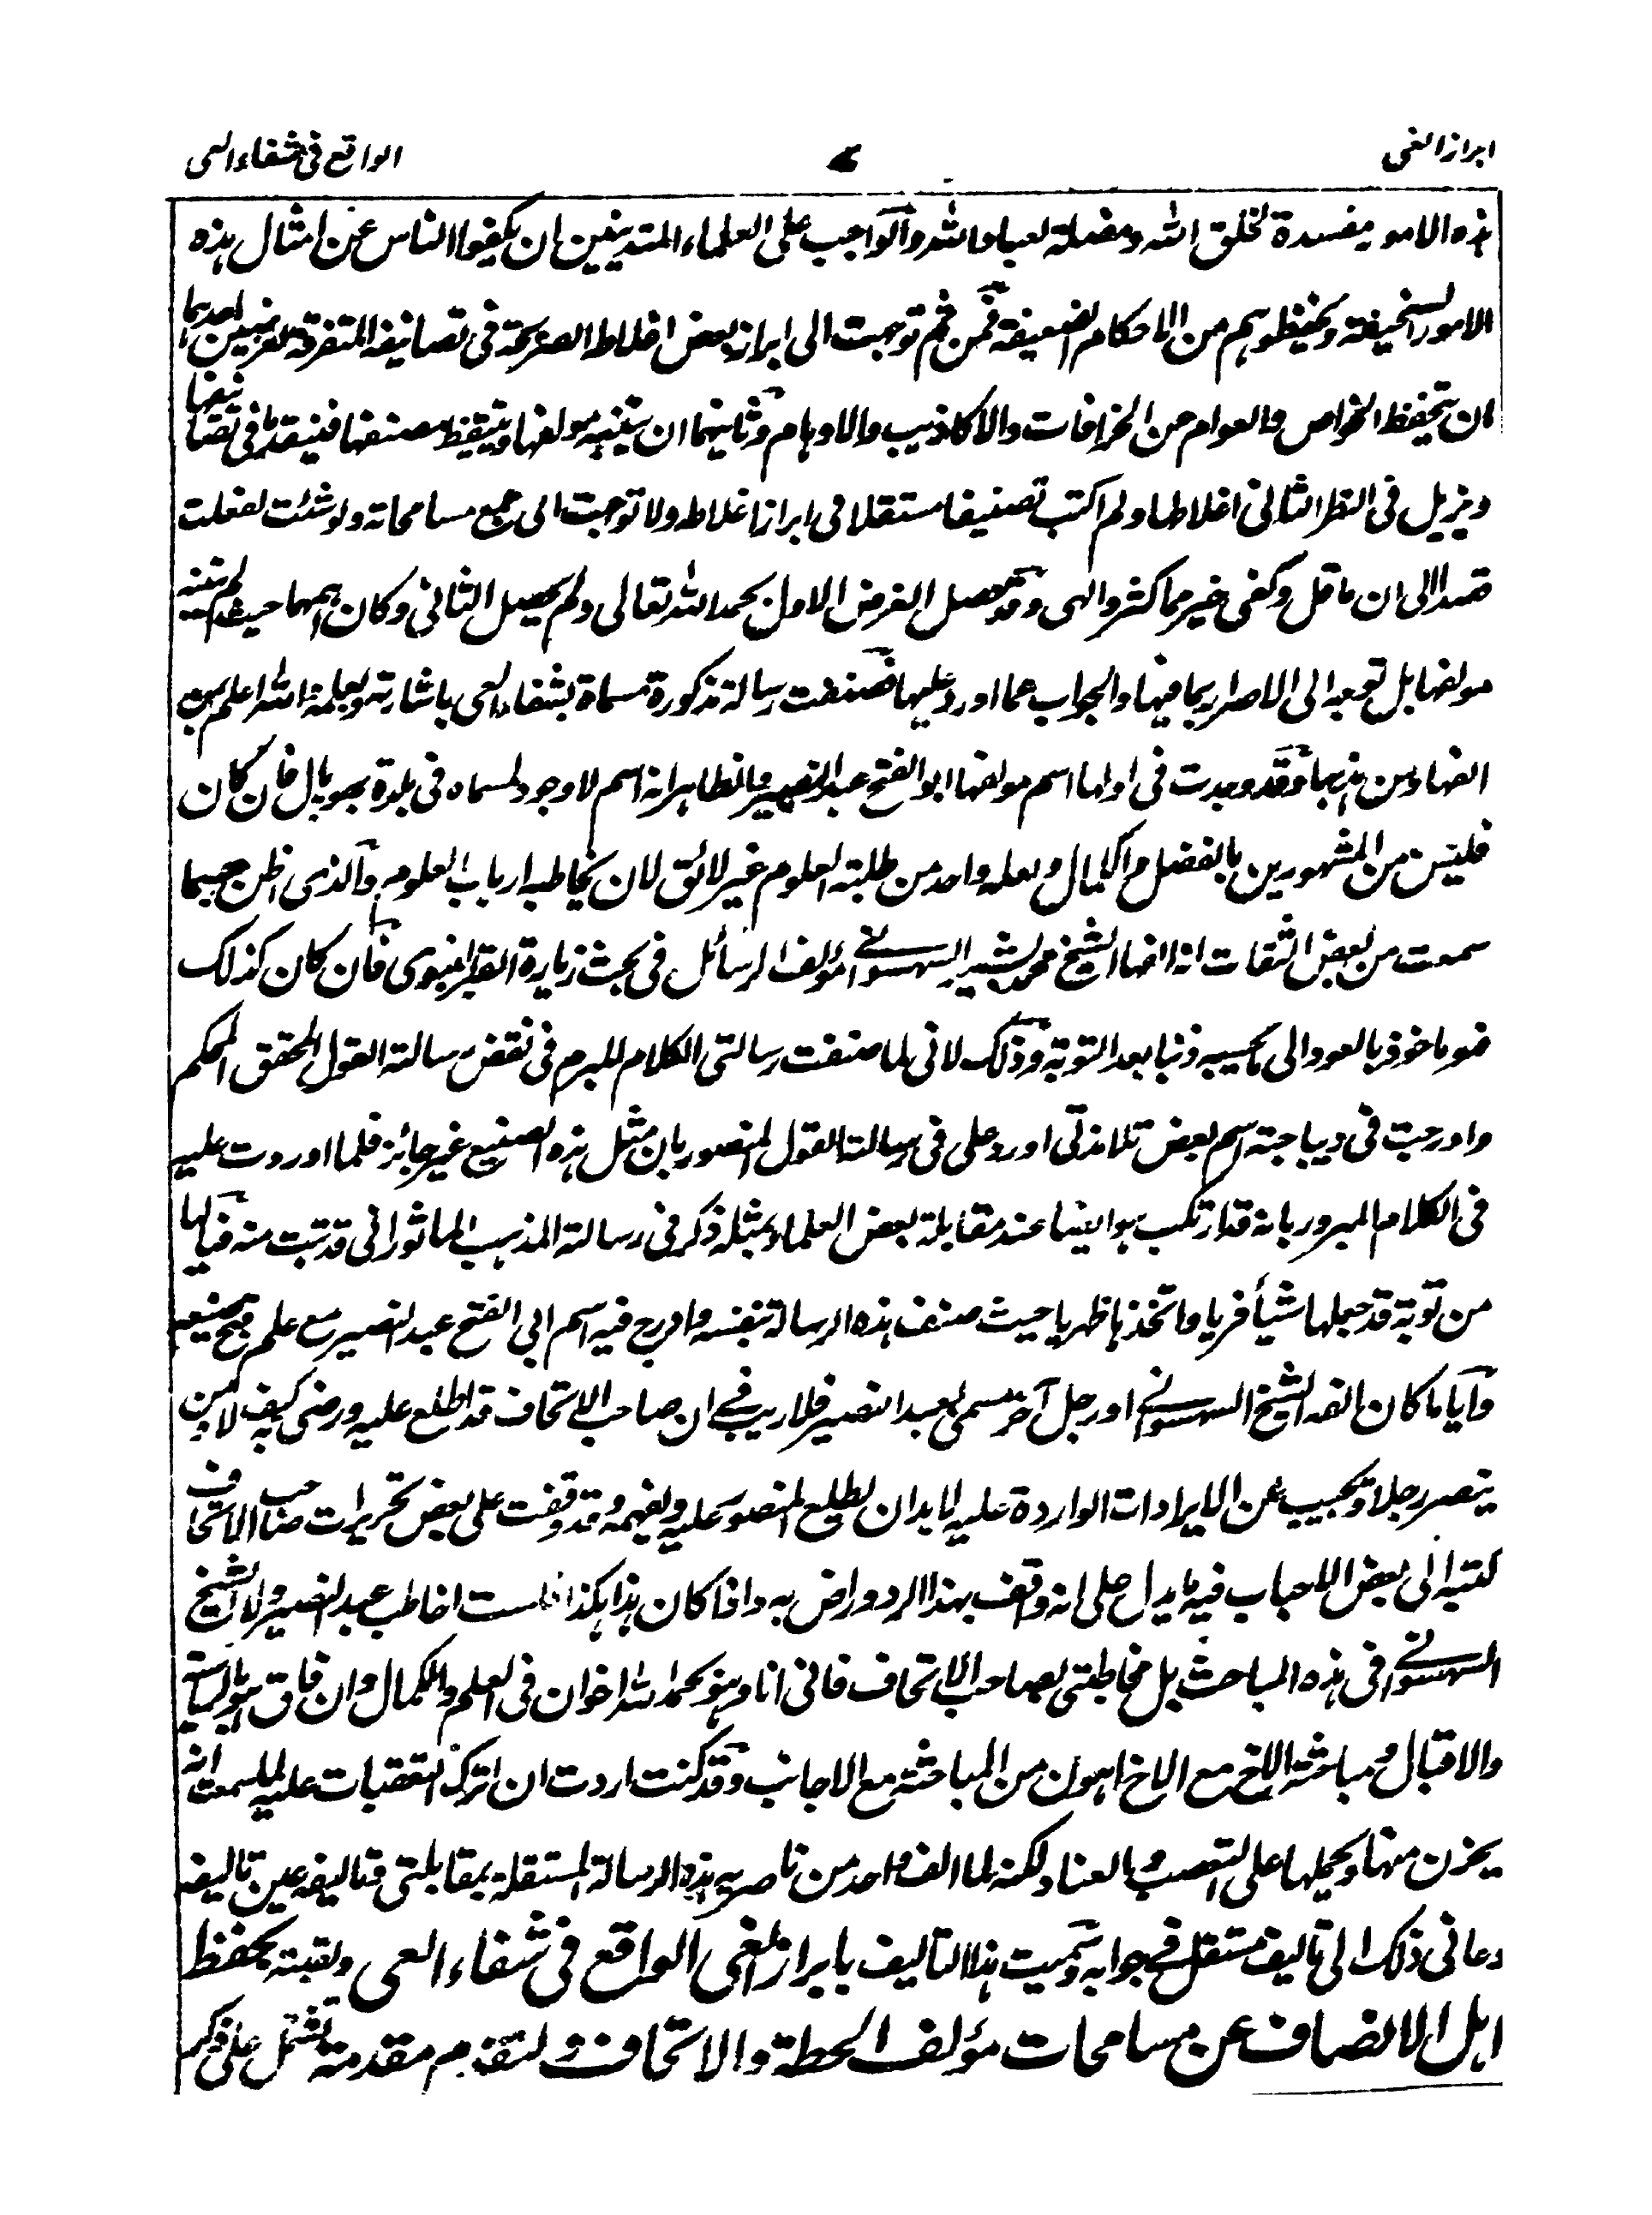 ابراز الغی
الواقع فی شفاء العی
هذه الامور مفسدة لخلق الله ومضلة لعباد الله والواجب علی العلماء المتدینین ان یکفوا الناس عن امثال هذه
الامور السخیفة ویحفظوهم من الاحکام الضعیفة فمن ثم توجهت الی ابراز بعض اغلاطه الصریحة فی تصانیفه المتفرقة لغرضین احدهما
ان یتحفظ الخواص والعوام من الخرافات والاکاذیب والاوهام وثانیهما ان یتنبه مولفها ویتیقظ مصنفها فینقدها فی تصانیفها
ویزیل فی النظر الثانی اغلاطها ولم اکتب تصنیفا مستقلا فی ابراز اغلاطه ولا توجهت الی جمع مسامحاته ولو شئت لفعلت
قصدا الی ان ما قل وکفی خیر مما کثر والهی وقد حصل الغرض الاول بحمد الله تعالی ولم یحصل الثانی وکان اهمهما حیث لم یتنبه
مولفها بل توجه الی الاصرار بما فیها والجواب عما اورد علیها فصنفت رسالة مذکورة مسماة بشفاء العی باشارته وبعلمه الله اعلم بمن
الفها ومن هذبها وقد وجدت فی اولها اسم مولفها ابو الفتح عبد النصیر والظاهر انه اسم لا وجود لمسماه فی بلدة بهوپال فان کان
فلیس من المشهورین بالفضل والکمال ولعله واحد من طلبة العلوم غیر لائق لان یخاطبه ارباب العلوم والذی اظن حسبما
سمعت من بعض الثقات انه الفها الشیخ محمد بشیر السهسوانی مؤلف الرسائل فی بحث زیارة القبر النبوی فان کان کذلک
فهو ماخوذ بالعود الی ما یحسبه ذنبا بعد التوبة وذلک لانی لما صنفت رسالتی الکلام المبرم فی نقض رسالة القول المحقق المحکم
وادرجت فی دیباجته اسم بعض تلامذتی اورد علی فی رسالته القول المنصور بان مثل هذه الصنیع غیر جائز فلما اوردت علیه
فی الکلام المبرور بانه قد ارتکب هو ایضا عند مقابلة بعض العلماء بمثله ذکر فی رسالته المذهب الماثور انی قد تبت منه فیا لها
من توبة قد جعلها شیأ فریا واتخذها ظهریا حیث صنف هذه الرسالة بنفسه وادرج فیه اسم ابی الفتح عبد النصیر مع علم قبح صنیعه
وایا ما کان الفه الشیخ السهسوانی او رجل آخر مسمی بعبد النصیر فلا ریب فی ان صاحب الاتحاف قد اطلع علیه ورضی به کیف لا ومن
ینصر رجلا ویجیب عن الایرادات الواردة علیه لابد ان یطلع المنصور علیه ویفهمه وقد وقفت علی بعض تحریرات صاحب الاتحاف
کتبه الی بعض الاحباب فیه ما یدل علی انه واقف بهذا الرد وراض به واذا کان هذا هکذا فلست اخاطب عبد النصیر ولا الشیخ
السهسوانی فی هذه المباحث بل مخاطبتی بصاحب الاتحاف فانی انا وهو بحمد الله اخوان فی العلم والکمال وان فاق هو بالریاسة
والاقبال ومباحثة الاخ مع الاخ اهون من المباحثة مع الاجانب وقد کنت اردت ان اترک التعقبات علیه لما سمعت انه
یحزن منها ویحملها علی التعصب والعناد ولکنه لما الف واحد من ناصریه هذه الرسالة المستقلة بمقابلتی فتالیفه عین تالیفه
دعانی ذلک الی تالیف مستقل فی جوابه وسمیت هذا التالیف بابراز الغی الواقع فی شفاء العی ولقبته بحفظ
اهل الانصاف عن مسامحات مؤلف الحطة والاتحاف ولنقدم مقدمة تشتمل علی ذکر